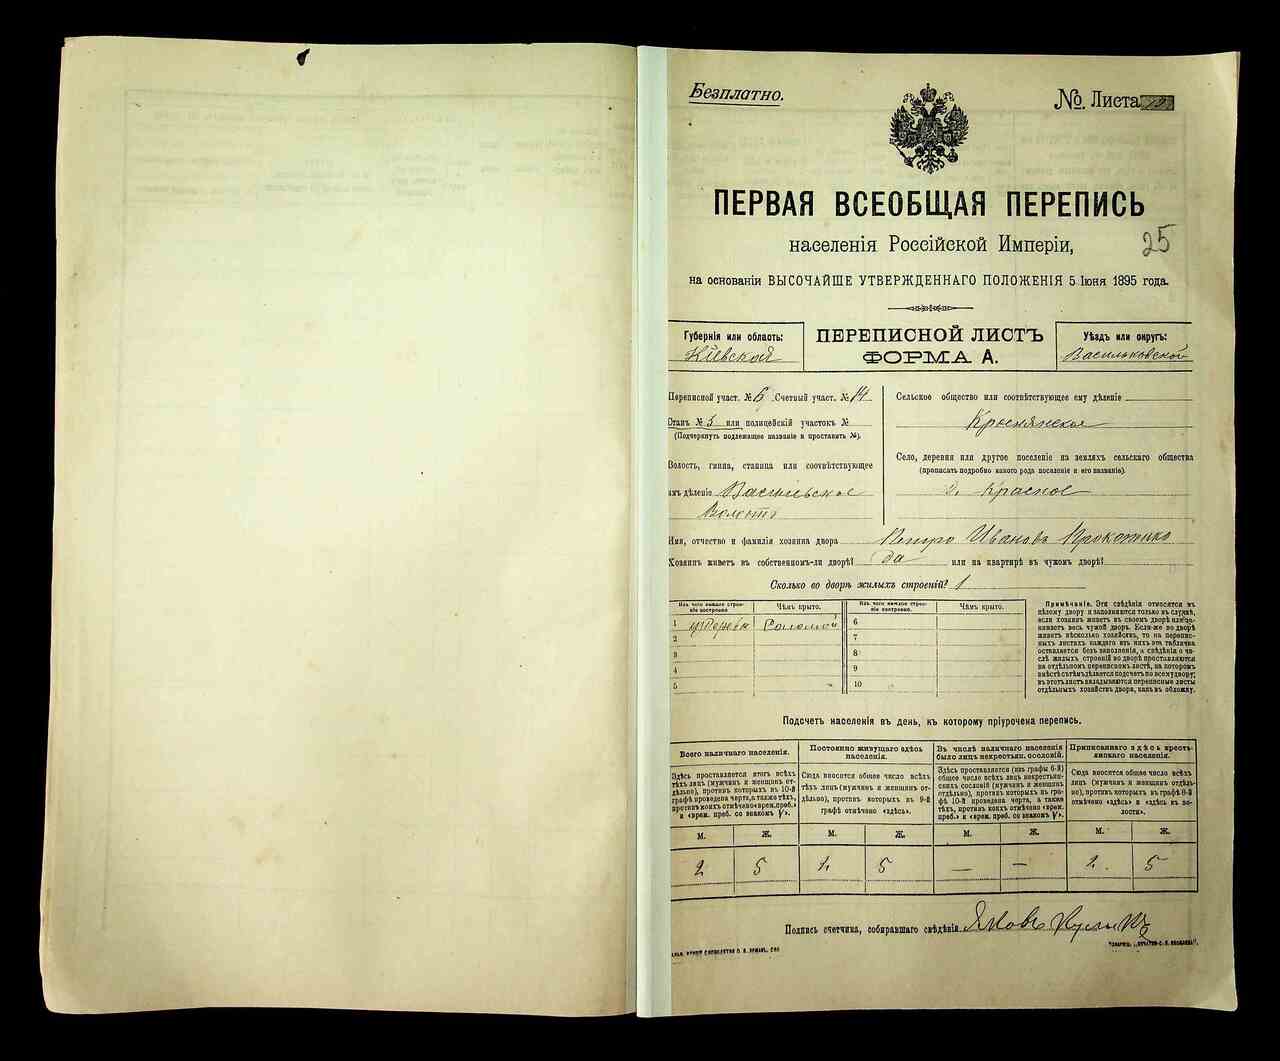 Безплатно.
№. Листа
ПЕРВАЯ ВСЕОБЩАЯ ПЕРЕПИСЬ
населенія Россійской Имперіи,
25
на основаніи ВЫСОЧАЙШЕ УТВЕРЖДЕННАГО ПОЛОЖЕНІЯ 5 Іюня 1895 года.
Губернія или область:
Кіевская
ПЕРЕПИСНОЙ ЛИСТЪ
ФОРМА А.
Уѣздъ или округъ:
Васильковской
Переписной участ. № 6 Счетный участ. № 14
Станъ № 5 или полицейскій участокъ №
(Подчеркнуть подлежащее названіе и проставить №).
Волость, гмина, станица или соотвѣтствующее
имъ дѣленіе
Сельское общество или соотвѣтствующее ему дѣленіе
Село, деревня или другое поселеніе на земляхъ сельскаго общества
(прописать подробно какого рода поселеніе и его названіе).
Красное
Имя, отчество и фамилія хозяина двора Иванова
Хозяинъ живетъ въ собственномъ-ли дворѣ? да или на квартирѣ въ чужомъ дворѣ?
Сколько во дворѣ жилыхъ строеній? 1
Изъ чего каждое строе-
ніе построено.
Чѣмъ крыто.
Изъ чего каждое строе-
ніе построено.
Чѣмъ крыто.
1 изъ Дерева Соломой 6
2 7
3 8
4 9
5 10
Примѣчаніе. Эти свѣдѣнія относятся къ
цѣлому двору и заполняются только въ случаѣ,
если хозяинъ живетъ въ своемъ дворѣ или за-
нимаетъ весь чужой дворъ. Если-же во дворѣ
живетъ нѣсколько хозяйствъ, то на перепис-
ныхъ листахъ каждаго изъ нихъ эта табличка
оставляется безъ заполненія, а свѣдѣнія о чи-
слѣ жилыхъ строеній во дворѣ проставляются
на отдѣльномъ переписномъ листѣ, на которомъ
вмѣстѣ съ тѣмъ дѣлается подсчетъ по всему двору;
въ этотъ листъ вкладываются переписные листы
отдѣльныхъ хозяйствъ двора, какъ въ обложку.
Подсчетъ населенія въ день, къ которому пріурочена перепись.
Всего наличнаго населенія.
Здѣсь проставляется итогъ всѣхъ
тѣхъ лицъ (мужчинъ и женщинъ от-
дѣльно), противъ которыхъ въ 10-й
графѣ проведена черта, а также тѣхъ,
противъ коихъ отмѣчено «врем. преб.»
и «врем. преб. со знакомъ V».
Постоянно живущаго здѣсь
населенія.
Сюда вносится общее число всѣхъ
тѣхъ лицъ (мужчинъ и женщинъ от-
дѣльно), противъ которыхъ въ 9-й
графѣ отмѣчено «здѣсь».
Въ числѣ наличнаго населенія
было лицъ некрестьян. сословій.
Здѣсь проставляется (изъ графы 6-й)
общее число всѣхъ лицъ некрестьян-
скихъ сословій (мужчинъ и женщинъ
отдѣльно), противъ которыхъ въ гра-
фѣ 10-й проведена черта, а также
тѣхъ, противъ коихъ отмѣчено «врем.
преб.» и «врем. преб. со знакомъ V».
Приписаннаго здѣсь кресть-
янскаго населенія.
Сюда вносится общее число всѣхъ
лицъ (мужчинъ и женщинъ отдѣль-
но), противъ которыхъ въ графѣ 8-й
отмѣчено «здѣсь» и «здѣсь въ во-
лости».
М. Ж. М. Ж. М. Ж. М. Ж.
2 5 2 5 — — 2 5
Подпись счетчика, собиравшаго свѣдѣнія Яковъ